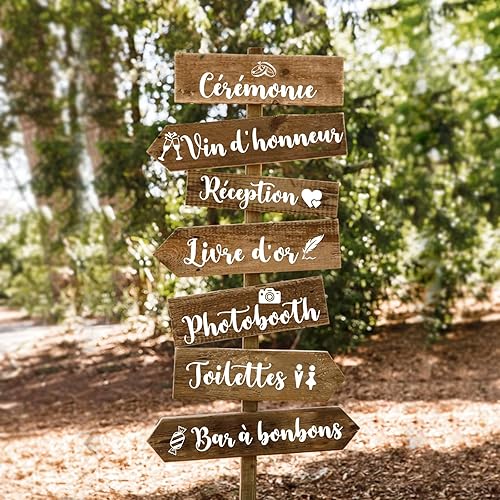 Cérémonie
Vin d'honneur
Réception
Livre d'or
Photobooth
Toilettes
Bar à bonbons